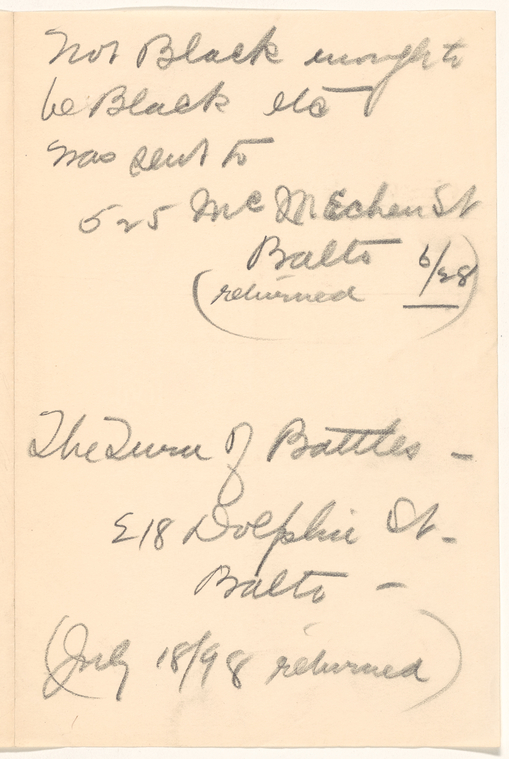 Not Black enough to
be Black etc
was sent to
525 McMEchen St
Balto 6/28
(returned)
The Turn of Battles –
218 Dolphin St.
Balto –
(July 18/98 returned)